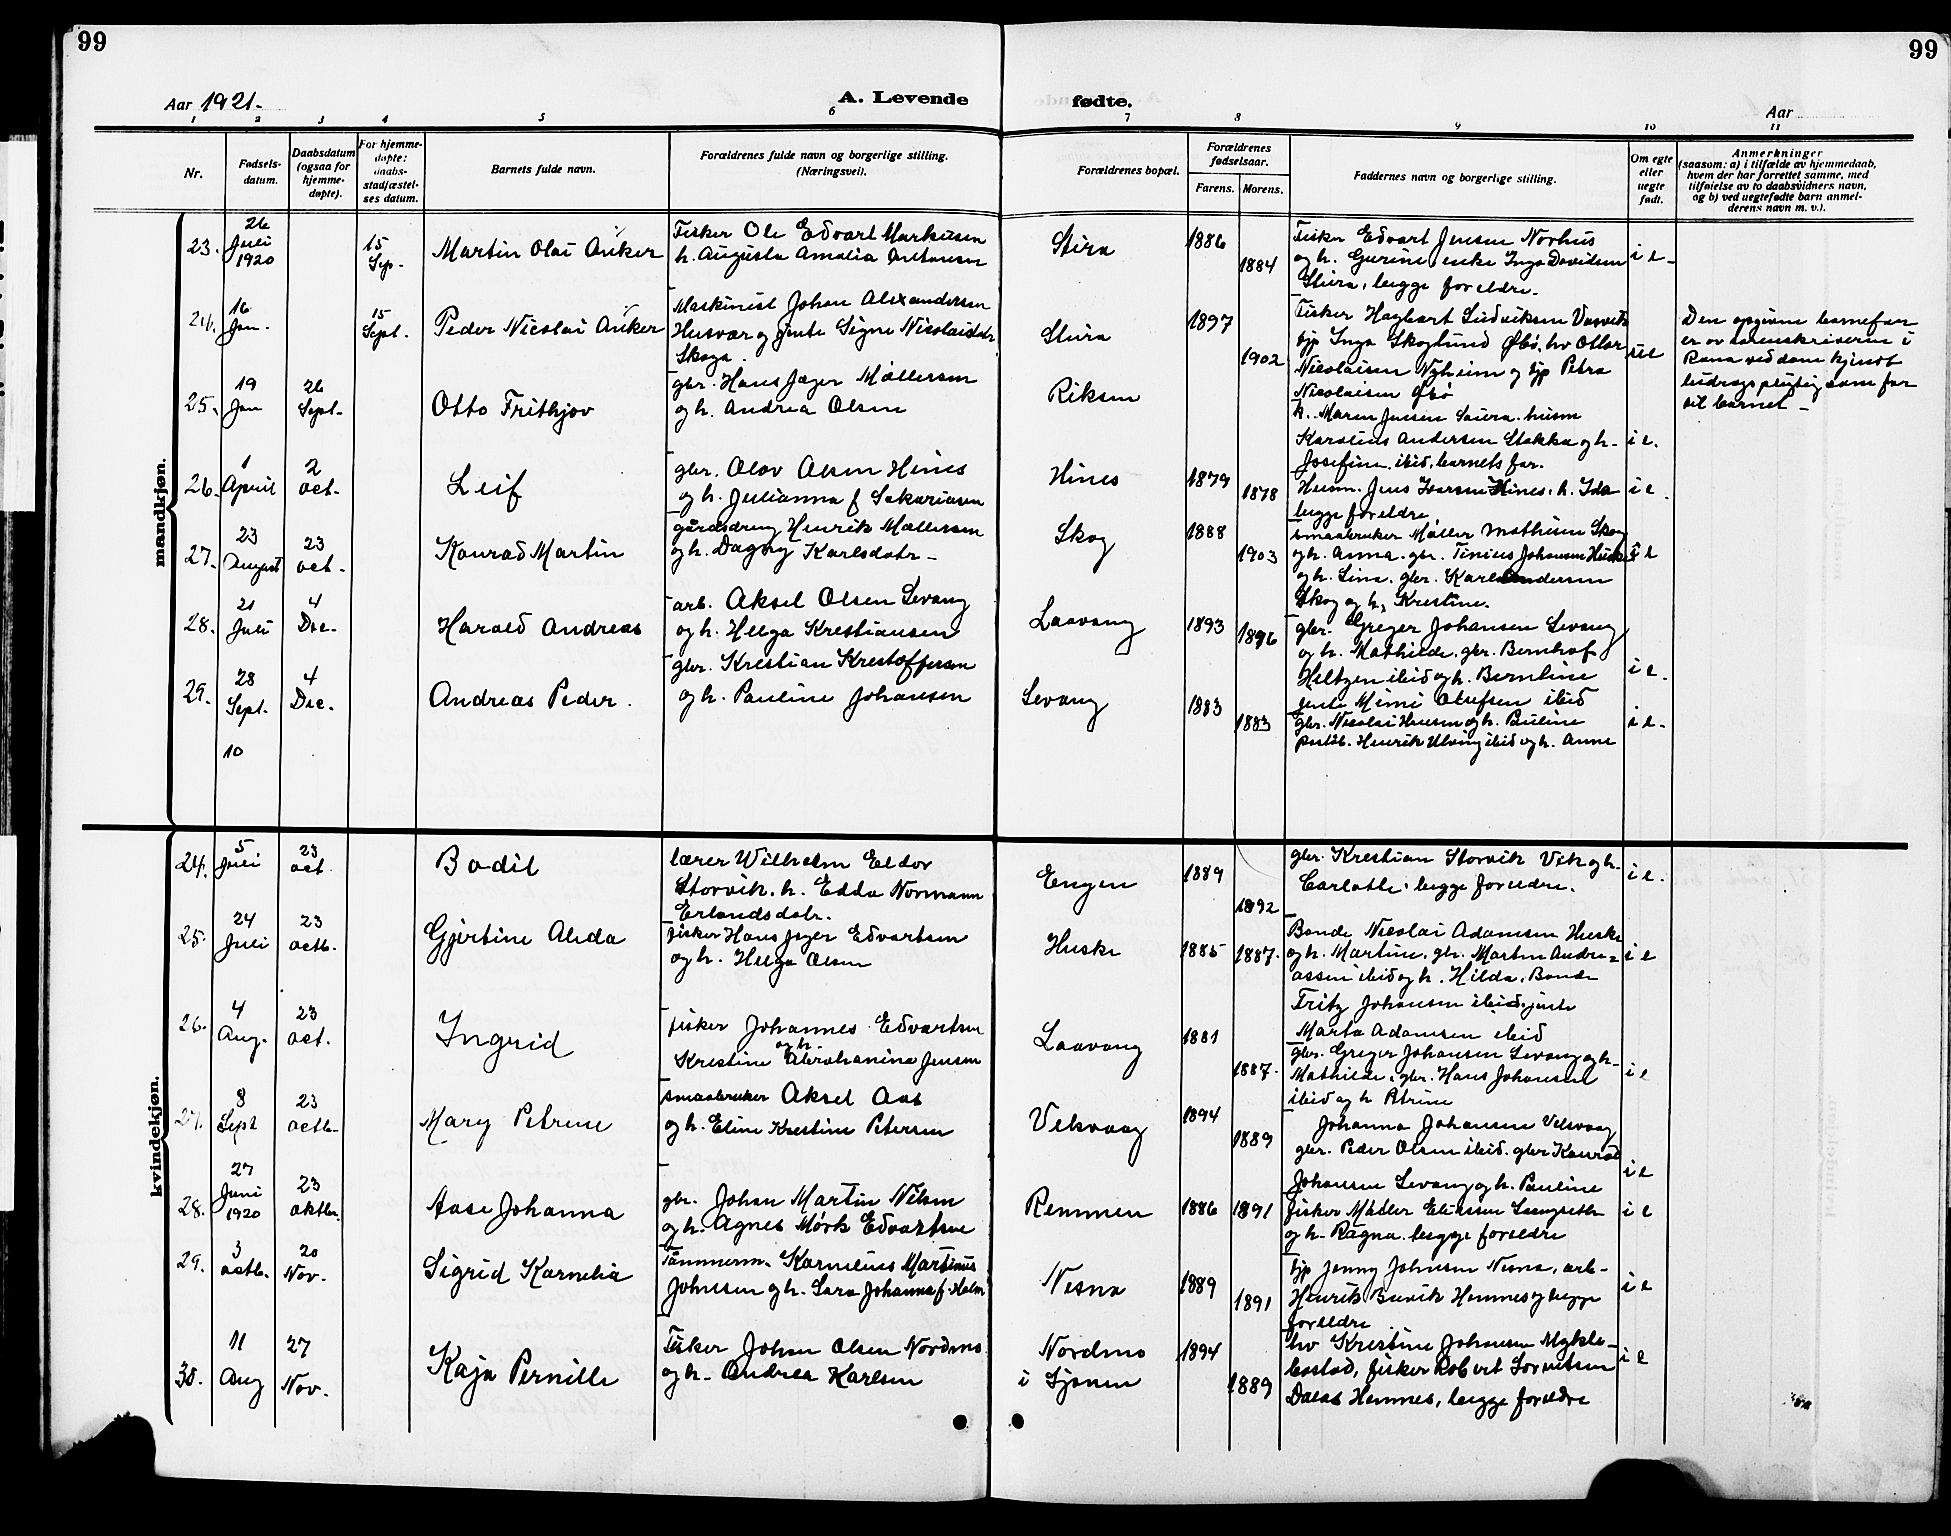 99
99
Aar 1921.
A. Levende
fødte.
Aar
1 2 3 4 5 6 7 8 9 10 11
Nr.
Fødsels-
datum.
Daabsdatum
(ogsaa for
hjemme-
døpte).
For hjemme-
døpte:
daabs-
stadfæstel-
ses datum.
Barnets fulde navn.
Forældrenes fulde navn og borgerlige stilling.
(Næringsvei).
Forældrenes bopæl.
Forældrenes
fødselsaar.
Farens. Morens.
Faddernes navn og borgerlige stilling.
Om egte
eller
uegte
født.
Anmerkninger
(saasom: a) i tilfælde av hjemmedaab,
hvem der har forrettet samme, med
tilføielse av to daabsvidners navn,
og b) ved uegtefødte barn anmel-
derens navn m. v.).
mandkjøn.
23.
26
Juli
1920
15
Sep.
Martin Olai Anker
Fisker Ole Edvart Markussen
h. Augusta Amalia Antonsen
Stira
1886
1884
Fisker Edvart Jensen Norhus
og h. Gurine, enke Inga Davidsen
Stiera, begge foreldre.
i e
24.
16
Jan.
15
Sept.
Peder Nicolai Anker
Maskinist Johan Alexandersen
Husvær og jente Signe Nicolaisdtr
Skoga.
Stiera
1897
1902
Fisker Hagbart Ludviksen Vasvik
pp Inga Skoglund Øbø, hv Ottar
Nicolaisen Nyheim og pp Petra
Nicolaisen Øbø
u e
Den opgivne barnefar
er av sorenskriveren i
Rana ved dom kjendt
bidragspligtig som far
til barnet –
25.
19
Jan
26
Sept.
Otto Frithjov
gbr. Hans Jæger Møllersen
og h. Andrea Olsen
Riksen
h. Maren Jensen Saura. husm
Karolius Andersen Stokka og h.
Josefine ibid, barnets far.
i e.
26.
1
April
2
oct.
Leif
gbr. Olav Olsen Hines
og h. Julianna f Sakariasen
Hines
1879
1878
Husm. Jens Iversen Hines. h. Ida
begge foreldre
i e.
27.
23
August
23
oct.
Konrad Martin
gårdsdreng Henrik Møllersen
og h. Dagny Karlsdatr –
Skog
1888
1903
smaabruker Møller Mathisen Skog
og h. Anna. gbr. Tinius Johansen Huske
og h. Lina. gbr. Karl Andersen
Skog og h. Krestine.
i e
28.
21
Juli
4
Dec.
Harald Andreas
arb. Aksel Olsen Levang
og h. Helga Krestiansen
Laavang
1893
1896
gbr. Greger Johansen Levang
og h. Mathilde. gbr. Bernhof
Heltzen ibid og h. Bernline
jente Mimi Olufsen ibid
i e.
29.
28
Sept.
4
Dec.
Andreas Peder.
gbr. Krestian Krestoffersen
og h. Pauline Johansen
Levang
1883
1883
gbr. Nicolai Hansen og h. Pauline
postb. Henrik Ulving ibid og h. Anne
i e.
10
kvindekjøn.
24.
5
Juli
23
oct.
Bodil
lærer Wilhelm Eldor
Storvik. h. Edda Normann
Erlandsdatr.
Engen
1889
1892
gbr. Krestian Storvik Vik og h.
Carlotte. begge foreldre.
i e.
25.
24
Juli
23
octb.
Gjertine Alida
fisker Hans Jeger Edvartsen
og h. Helga Olsen
Huske
1885
1887.
Bonde Nicolai Adamsen Huske
og h. Martine. gbr. Martin Andre=
assen ibid og h. Hilda. Bonde
Fritz Johansen ibid. jente
Marta Adamsen ibid
i e
26.
4
Aug.
23
oct.
Ingrid
fisker Johannes Edvartsen
og h.
Krestine Abrahanina Jensen
Laavang
1881
1887.
gbr. Greger Johansen Levang og h.
Mathilde. gbr. Hans Johansen
ibid og h Petrine
i e
27.
8
Sept
23
octb.
Mary Petrine
smaabruker Aksel Aas
og h. Eline Krestine Petersen
Vikvaag
1894
1889
Johanna Johansen Vikvaag
gbr. Peder Olsen ibid. gbr Konrad
Johansen Levang og h. Pauline
i e
28.
27
Juni
1920
23
oktbr.
Aase Johanna
gbr. Johan Martin Nilsen
og h. Agnes Mörk Edvartsen
Remmen
1886
1891
fisker Møller Eliassen Langseth
og h. Ragna. begge foreldre
i e
29.
3
octb.
20
Nov.
Sigrid Karnelia
Tömmerm. Karnelius Martinus
Johnsen og h. Sara Johanna f. Holm
Nesna
1889
1891
pp Jenny Johnsen Nesna, arb.
Henrik Buvik Hemnes og begge
foreldre
i e
30.
11
Aug
27
Nov.
Kaja Pernille
Fisker Johan Olsen Nordmo
og h. Andrea Karlsen
Nordmo
i Sjonen
1894
1889
hv Krestine Johansen Mykle-
bostad, fisker Robert Lorentsen
Dalas Hemnes, begge foreldre
i e